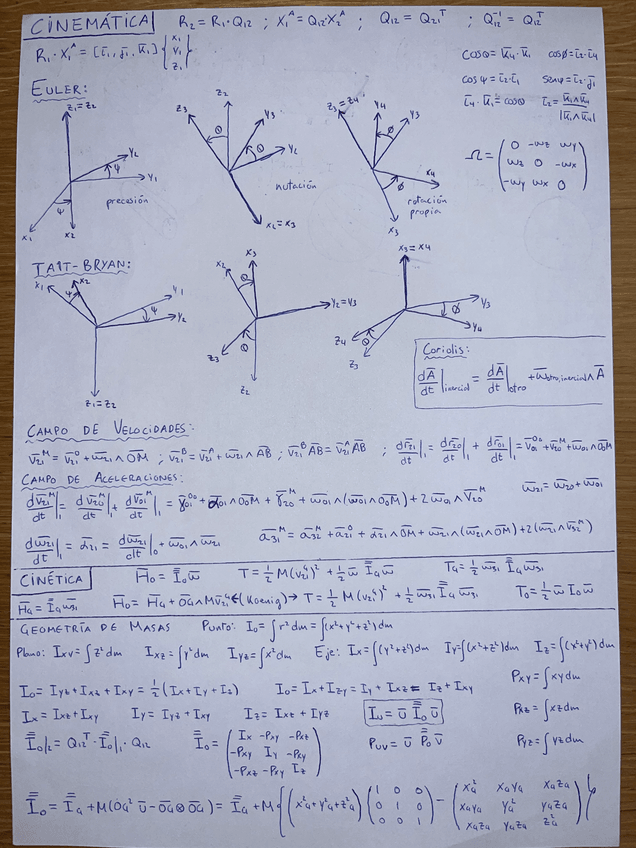 CINEMÁTICA R₂ = R₁·Q₁₂ ; X₁ᴬ = Q₁₂·X₂ᴬ ; Q₁₂ = Q₂₁ᵀ ; Q₁₂⁻¹ = Q₁₂ᵀ
R₁·X₁ᴬ = [i̅₁, j̅₁, k̅₁] { x₁ y₁ z₁ }
cosθ = k̅₄·k̅₁ cosϕ = i̅₂·i̅₄
cosψ = i̅₂·i̅₁ senψ = i̅₂·j̅₁
i̅₄·k̅₁ = cosθ i̅₂ = k̅₁∧k̅₄ / |k̅₁∧k̅₄|
EULER:
z₁=z₂ y₂ y₁ ψ ψ x₁ x₂ precesión
z₃ z₂ y₃ y₂ θ θ x₂=x₃ nutación
z₃=z₄ y₄ y₃ x₄ ϕ ϕ x₃ rotación propia
Ω = ( 0 -wz wy
wz 0 -wx
-wy wx 0 )
TAIT-BRYAN:
x₁ x₂ y₁ y₂ ψ ψ z₁=z₂
x₃ x₂ θ y₂=y₃ z₃ θ z₂
x₃=x₄ y₃ ϕ y₄ z₄ θ z₃
Coriolis:
dA̅/dt|inercial = dA̅/dt|otro + w̅otro,inercial ∧ A̅
CAMPO DE VELOCIDADES:
v̅₂₁ᴹ = v̅₂₁ᴼ + w̅₂₁∧O̅M̅ ; v̅₂₁ᴮ = v̅₂₁ᴬ + w̅₂₁∧A̅B̅ ; v̅₂₁ᴮ A̅B̅ = v̅₂₁ᴬ A̅B̅ ; dr̅₂₁/dt|₁ = dr̅₂₀/dt|₁ + dr̅₀₁/dt|₁ = v̅₀₁ᴼ⁰ + v̅₂₀ᴹ + w̅₀₁∧O̅₀M̅
CAMPO DE ACELERACIONES:
dv̅₂₁ᴹ/dt|₁ = dv̅₂₀ᴹ/dt|₁ + dv̅₀₁ᴹ/dt|₁ = γ̅₀₁ᴼ⁰ + α̅₀₁∧O̅₀M̅ + γ̅₂₀ᴹ + w̅₀₁∧(w̅₀₁∧O̅₀M̅) + 2w̅₀₁∧v̅₂₀ᴹ w̅₂₁ = w̅₂₀ + w̅₀₁
dw̅₂₁/dt|₁ = α̅₂₁ = dw̅₂₁/dt|₀ + w̅₀₁∧w̅₂₁ a̅₃₁ᴹ = a̅₃₂ᴹ + a̅₂₁ᴼ + α̅₂₁∧O̅M̅ + w̅₂₁∧(w̅₂₁∧O̅M̅) + 2(w̅₂₁∧v̅₃₂ᴹ)
CINÉTICA H̅₀ = I̿₀w̅ T = 1/2 M(v₂₁ᴳ)² + 1/2 w̅ I̿G w̅ TG = 1/2 w̅₃₁ I̿G w̅₃₁
H̅G = I̿G w̅₃₁ H̅₀ = H̅G + O̅G̅∧Mv̅₂₁ᴳ ←(Koenig)→ T = 1/2 M(v₂₁ᴳ)² + 1/2 w̅₃₁ I̿G w̅₃₁ T₀ = 1/2 w̅ I̿₀ w̅
GEOMETRÍA DE MASAS Punto: I₀ = ∫r²dm = ∫(x²+y²+z²)dm
Plano: Ixy = ∫z²dm Ixz = ∫y²dm Iyz = ∫x²dm Eje: Ix = ∫(y²+z²)dm Iy = ∫(x²+z²)dm Iz = ∫(x²+y²)dm
I₀ = Iyz + Ixz + Ixy = 1/2 (Ix + Iy + Iz) I₀ = Ix + Izy = Iy + Ixz = Iz + Ixy Pxy = ∫xydm
Ix = Ixz + Ixy Iy = Iyz + Ixy Iz = Ixz + Iyz Iu = u̅ I̿₀ u̅ Pxz = ∫xzdm
I̿₀|₂ = Q₁₂ᵀ·I̿₀|₁·Q₁₂ I̿₀ = ( Ix -Pxy -Pxz
-Pxy Iy -Pxy
-Pxz -Pxy Iz ) Puv = u̅ P̿₀ v̅ Pyz = ∫yzdm
I̿₀ = I̿G + M(O̅G̅² U̿ - O̅G̅⊗O̅G̅) = I̿G + M{ (x²G+y²G+z²G) ( 1 0 0
0 1 0
0 0 1 ) - ( xG² xGyG xGzG
xGyG yG² yGzG
xGzG yGzG zG² ) }